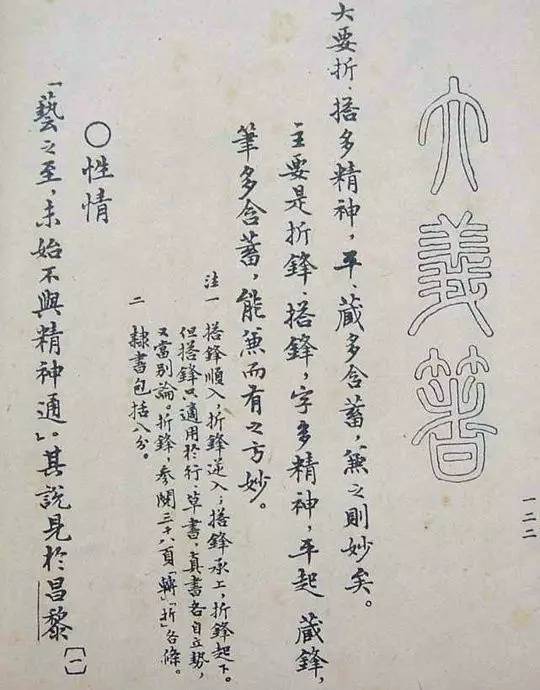 一二二
大義箸
大要折、搭多精神，平、藏多含蓄，兼之則妙矣。
主要是折鋒、搭鋒，字多精神，平起 藏鋒，
筆多含蓄，能兼而有之方妙。
注一 搭鋒順入，折鋒逆入；搭鋒承上，折鋒起下。
但搭鋒只適用於行、草書，真書各自立勢，
又當別論。折鋒參閱三十八頁「轉」「折」各條。
二 隸書包括八分。
○性情
「藝之至，未始不與精神通」。其說見於昌黎〔一〕